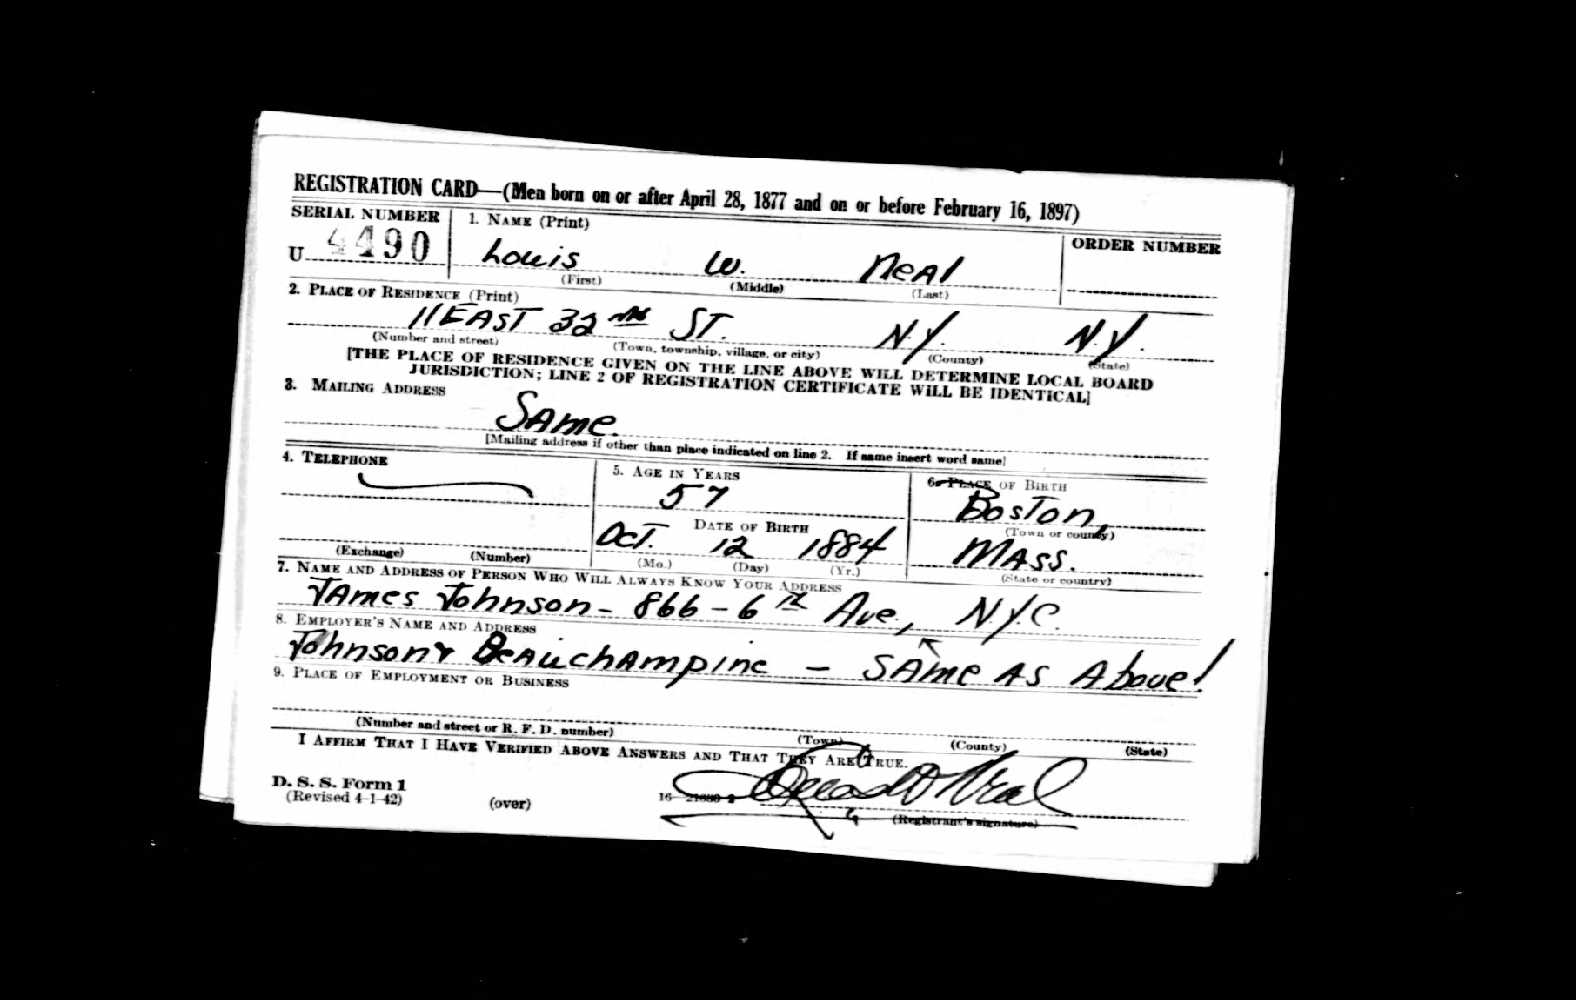 REGISTRATION CARD—(Men born on or after April 28, 1877 and on or before February 16, 1897)
SERIAL NUMBER 1. NAME (Print) ORDER NUMBER
U 4490 Louis W. Neal
(First) (Middle) (Last)
2. PLACE OF RESIDENCE (Print)
11 EAST 32nd ST. NY. N.Y.
(Number and street) (Town, township, village, or city) (County) (State)
[THE PLACE OF RESIDENCE GIVEN ON THE LINE ABOVE WILL DETERMINE LOCAL BOARD
JURISDICTION; LINE 2 OF REGISTRATION CERTIFICATE WILL BE IDENTICAL]
3. MAILING ADDRESS
SAme.
[Mailing address if other than place indicated on line 2. If same insert word same]
4. TELEPHONE 5. AGE IN YEARS 6. PLACE OF BIRTH
57 Boston,
DATE OF BIRTH (Town or county)
Oct. 12 1884 MASS.
(Exchange) (Number) (Mo.) (Day) (Yr.) (State or country)
7. NAME AND ADDRESS OF PERSON WHO WILL ALWAYS KNOW YOUR ADDRESS
JAmes Johnson - 866 - 6th Ave, NYC.
8. EMPLOYER'S NAME AND ADDRESS
Johnson & BeAuchAmpine - SAme As Above!
9. PLACE OF EMPLOYMENT OR BUSINESS
(Number and street or R. F. D. number) (Town) (County) (State)
I AFFIRM THAT I HAVE VERIFIED ABOVE ANSWERS AND THAT THEY ARE TRUE.
D. S. S. Form 1
(Revised 4-1-42) (over) 16 Louis W Neal
(Registrant's signature)